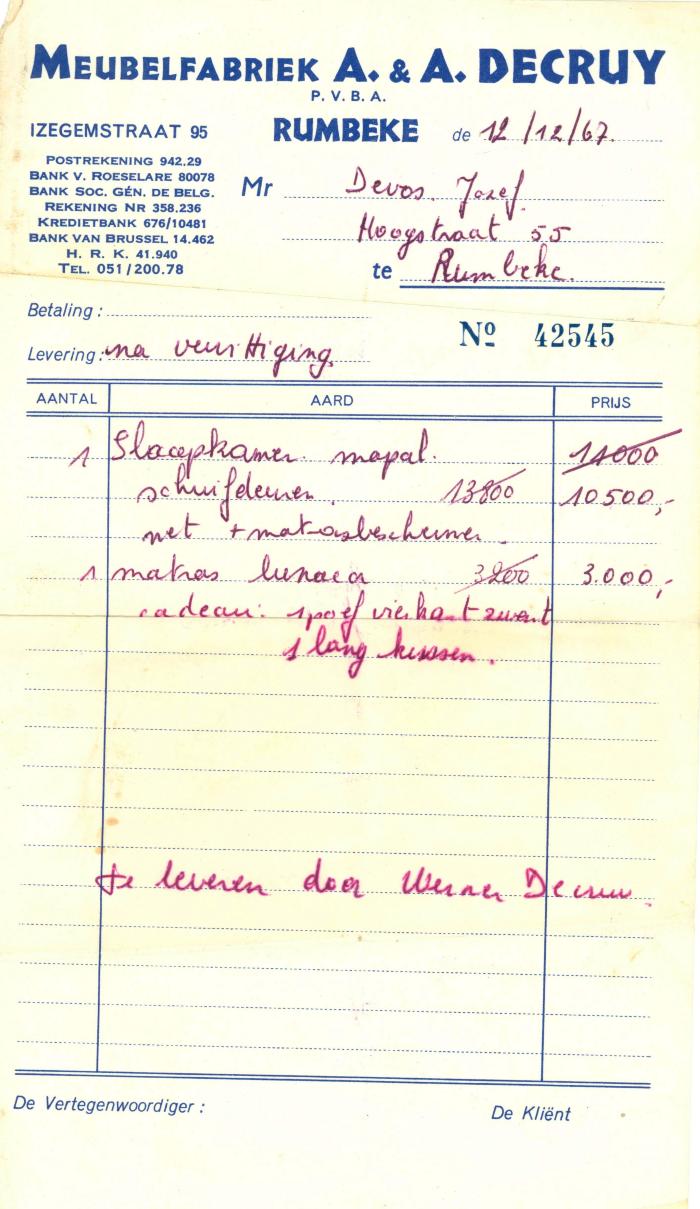 MEUBELFABRIEK A. & A. DECRUY
P. V. B. A.
IZEGEMSTRAAT 95 RUMBEKE de 12/12/67.
POSTREKENING 942.29
BANK V. ROESELARE 80078
BANK SOC. GÉN. DE BELG.
REKENING NR 358.236
KREDIETBANK 676/10481
BANK VAN BRUSSEL 14.462
H. R. K. 41.940
TEL. 051/200.78
Mr Devos. Jozef
Hoogstraat 55
te Rumbeke.
Betaling :
Nº 42545
Levering : na verwittiging.
AANTAL AARD PRIJS
1 Slaapkamer mapal. 11000
schuifdeuren. 13800 10500,-
net + matrasbeschermer.
1 matras lunaca 3200 3.000,-
cadeau: 1 poef vierkant zwart
1 lang kussen.
te leveren door Werner Decruy.
De Vertegenwoordiger :
De Kliënt